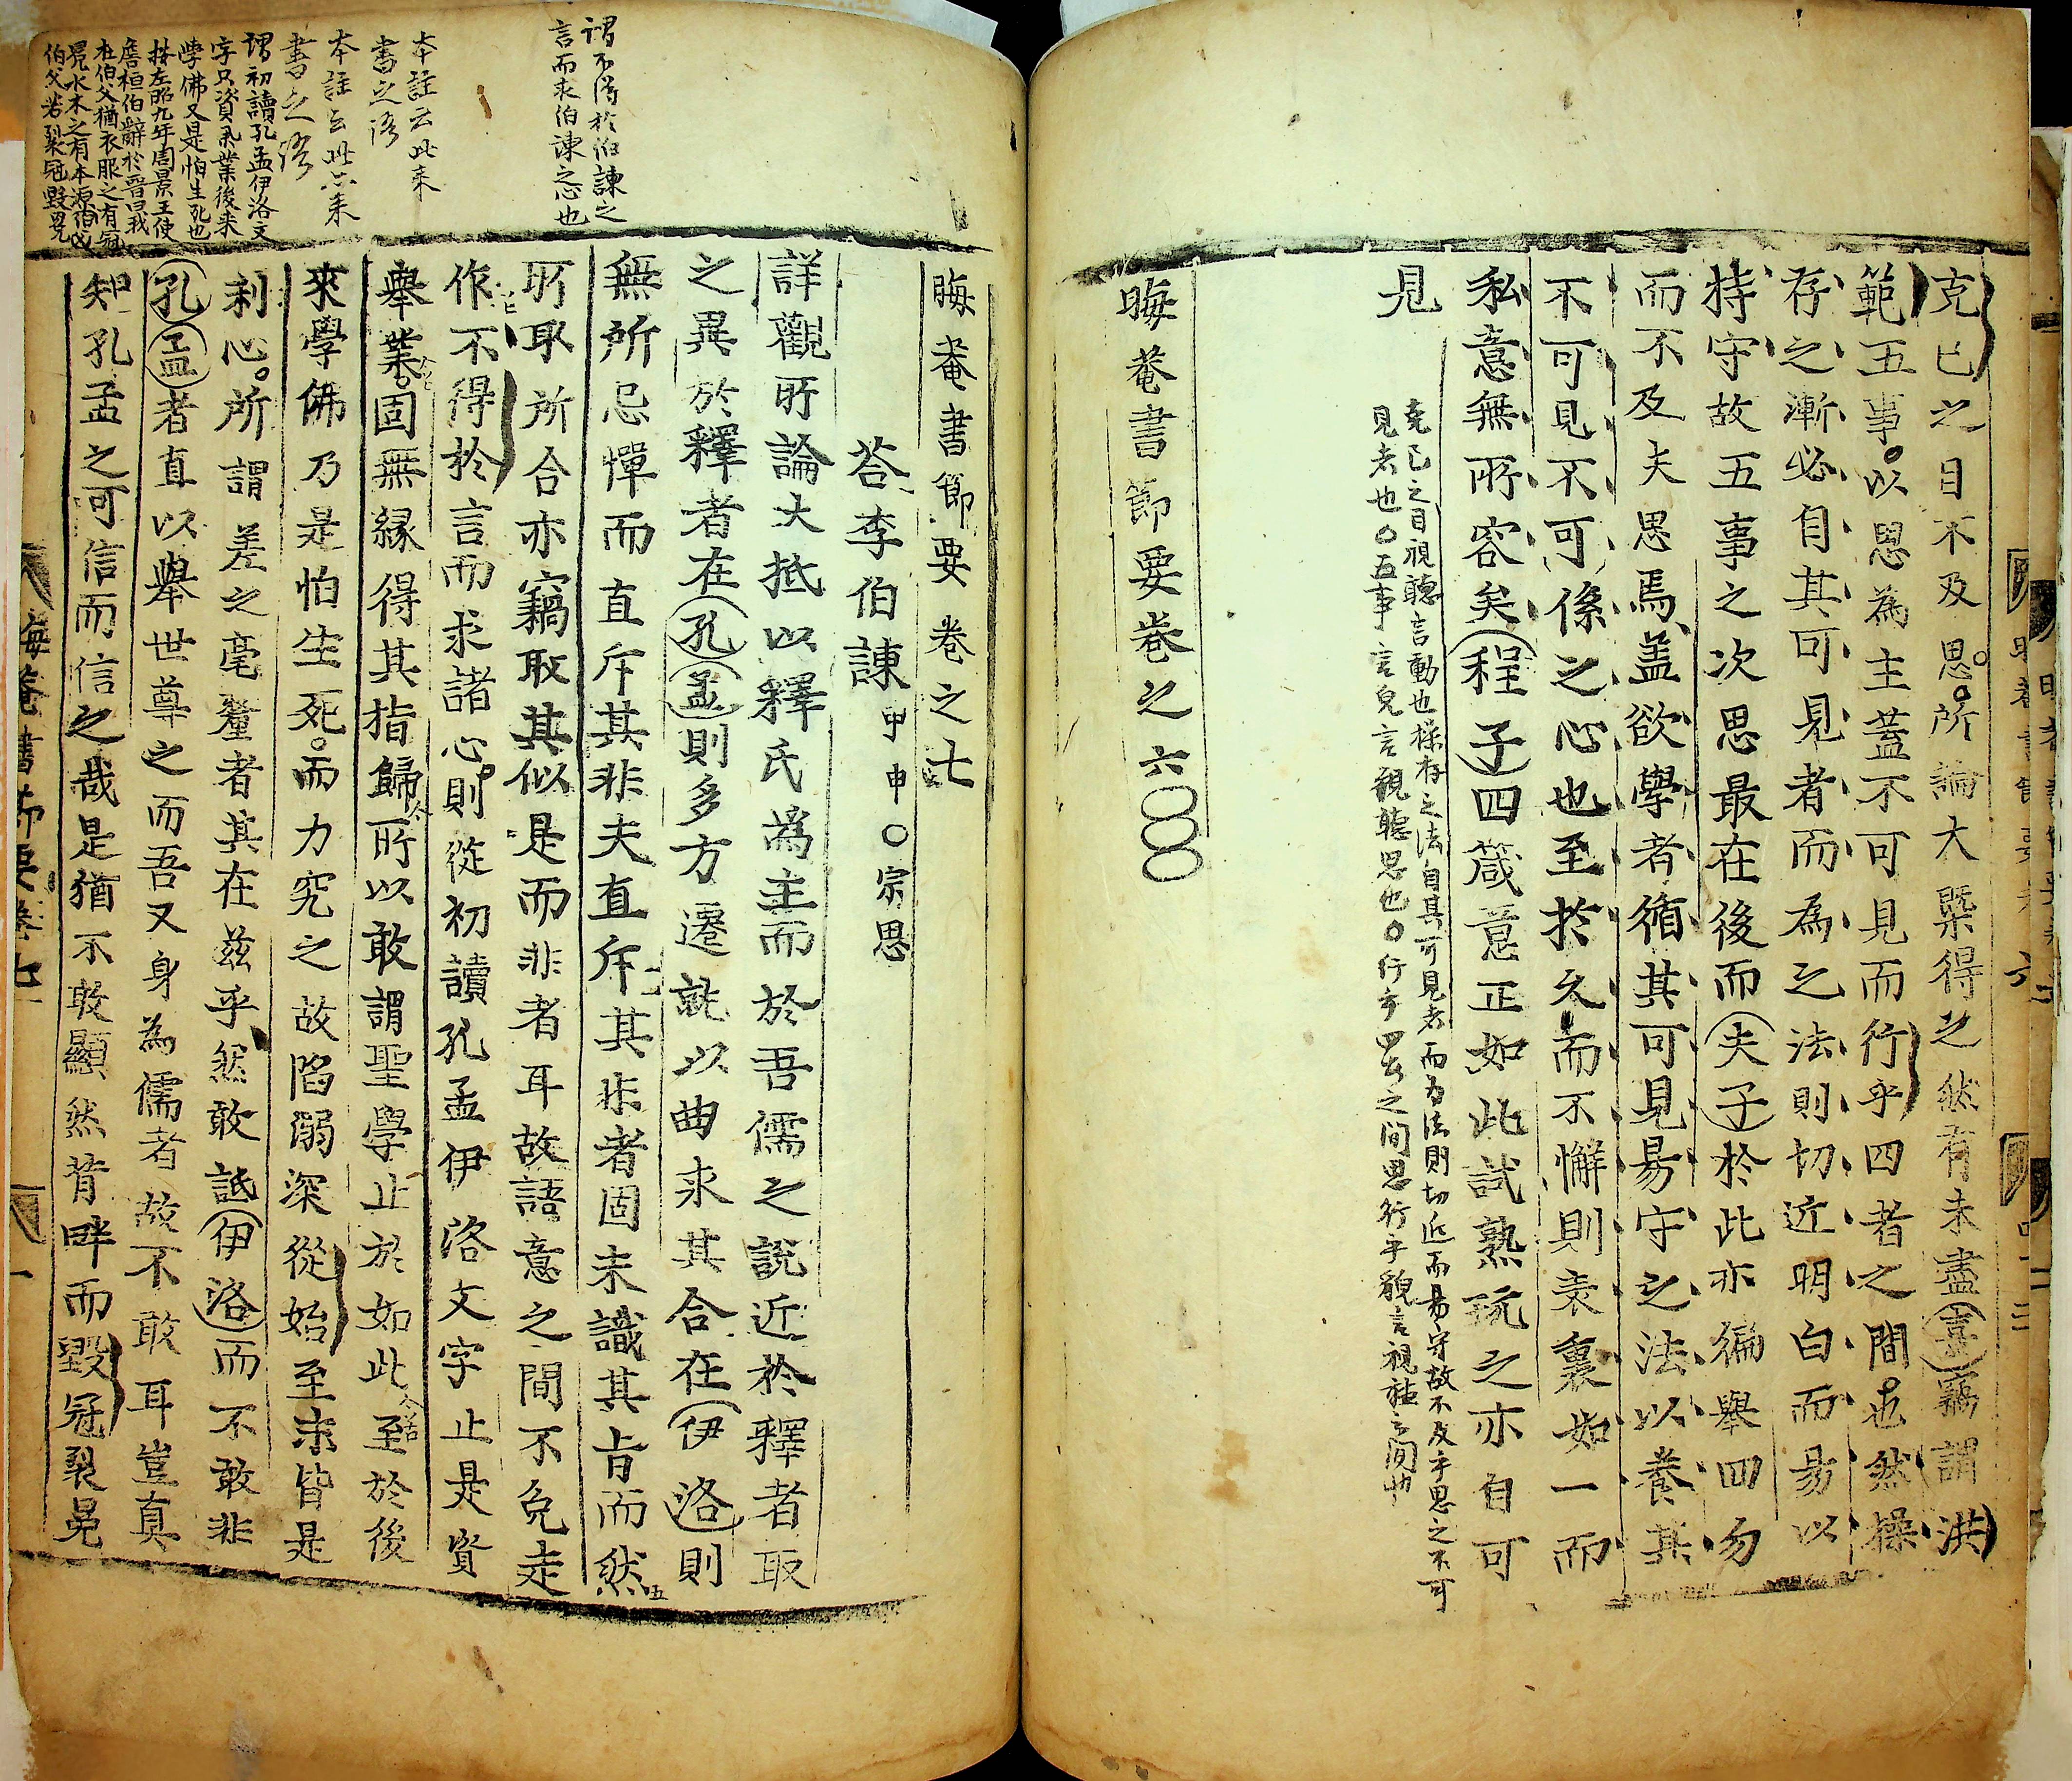 克己之目不及思所論大槩得之然有未盡熹竊謂洪
範五事以思為主蓋不可見而行乎四者之間也然操
存之漸必自其可見者而為之法則切近明白而易以
持守故五事之次思最在後而夫子於此亦徧舉四勿
而不及夫思焉蓋欲學者循其可見易守之法以養其
不可見不可係之心也至於久而不懈則表裏如一而
私意無所容矣程子四箴意正如此試熟玩之亦自可
見
克己之目視聽言動也操存之法自其可見者而為法則切近而易守故不及乎思之不可
見者也○五事言皃言視聽思也○行乎四者之間思行乎貌言視聽之間也
晦菴書節要卷之六
晦菴書節要卷之七
荅李伯諫甲申○宗思
詳觀所論大抵以釋氏為主而於吾儒之說近於釋者取
之異於釋者在孔孟則多方遷就以曲求其合在伊洛則
無所忌憚而直斥其非夫直斥其非者固未識其旨而然
所取所合亦竊取其似是而非者耳故語意之間不免走
作不得於言而求諸心則從初讀孔孟伊洛文字止是資
舉業固無緣得其指歸所以敢謂聖學止於如此至於後
來學佛乃是怕生死而力究之故陷溺深從始至末皆是
利心所謂差之毫釐者其在茲乎然敢詆伊洛而不敢非
孔孟者直以舉世尊之而吾又身為儒者故不敢耳豈真
知孔孟之可信而信之哉是猶不敢顯然背畔而毀冠裂冕
謂不得於伯諫之
言而求伯諫之心也
本註云此來
書之語
本註云此亦來
書之語
謂初讀孔孟伊洛文
字只資舉業後來
學佛又是怕生死也
按左昭九年周景王使
詹桓伯辭於晉曰我
在伯父猶衣服之有冠
冕水木之有本源伯父
伯父若裂冠毀冕
晦菴書節要卷七
一